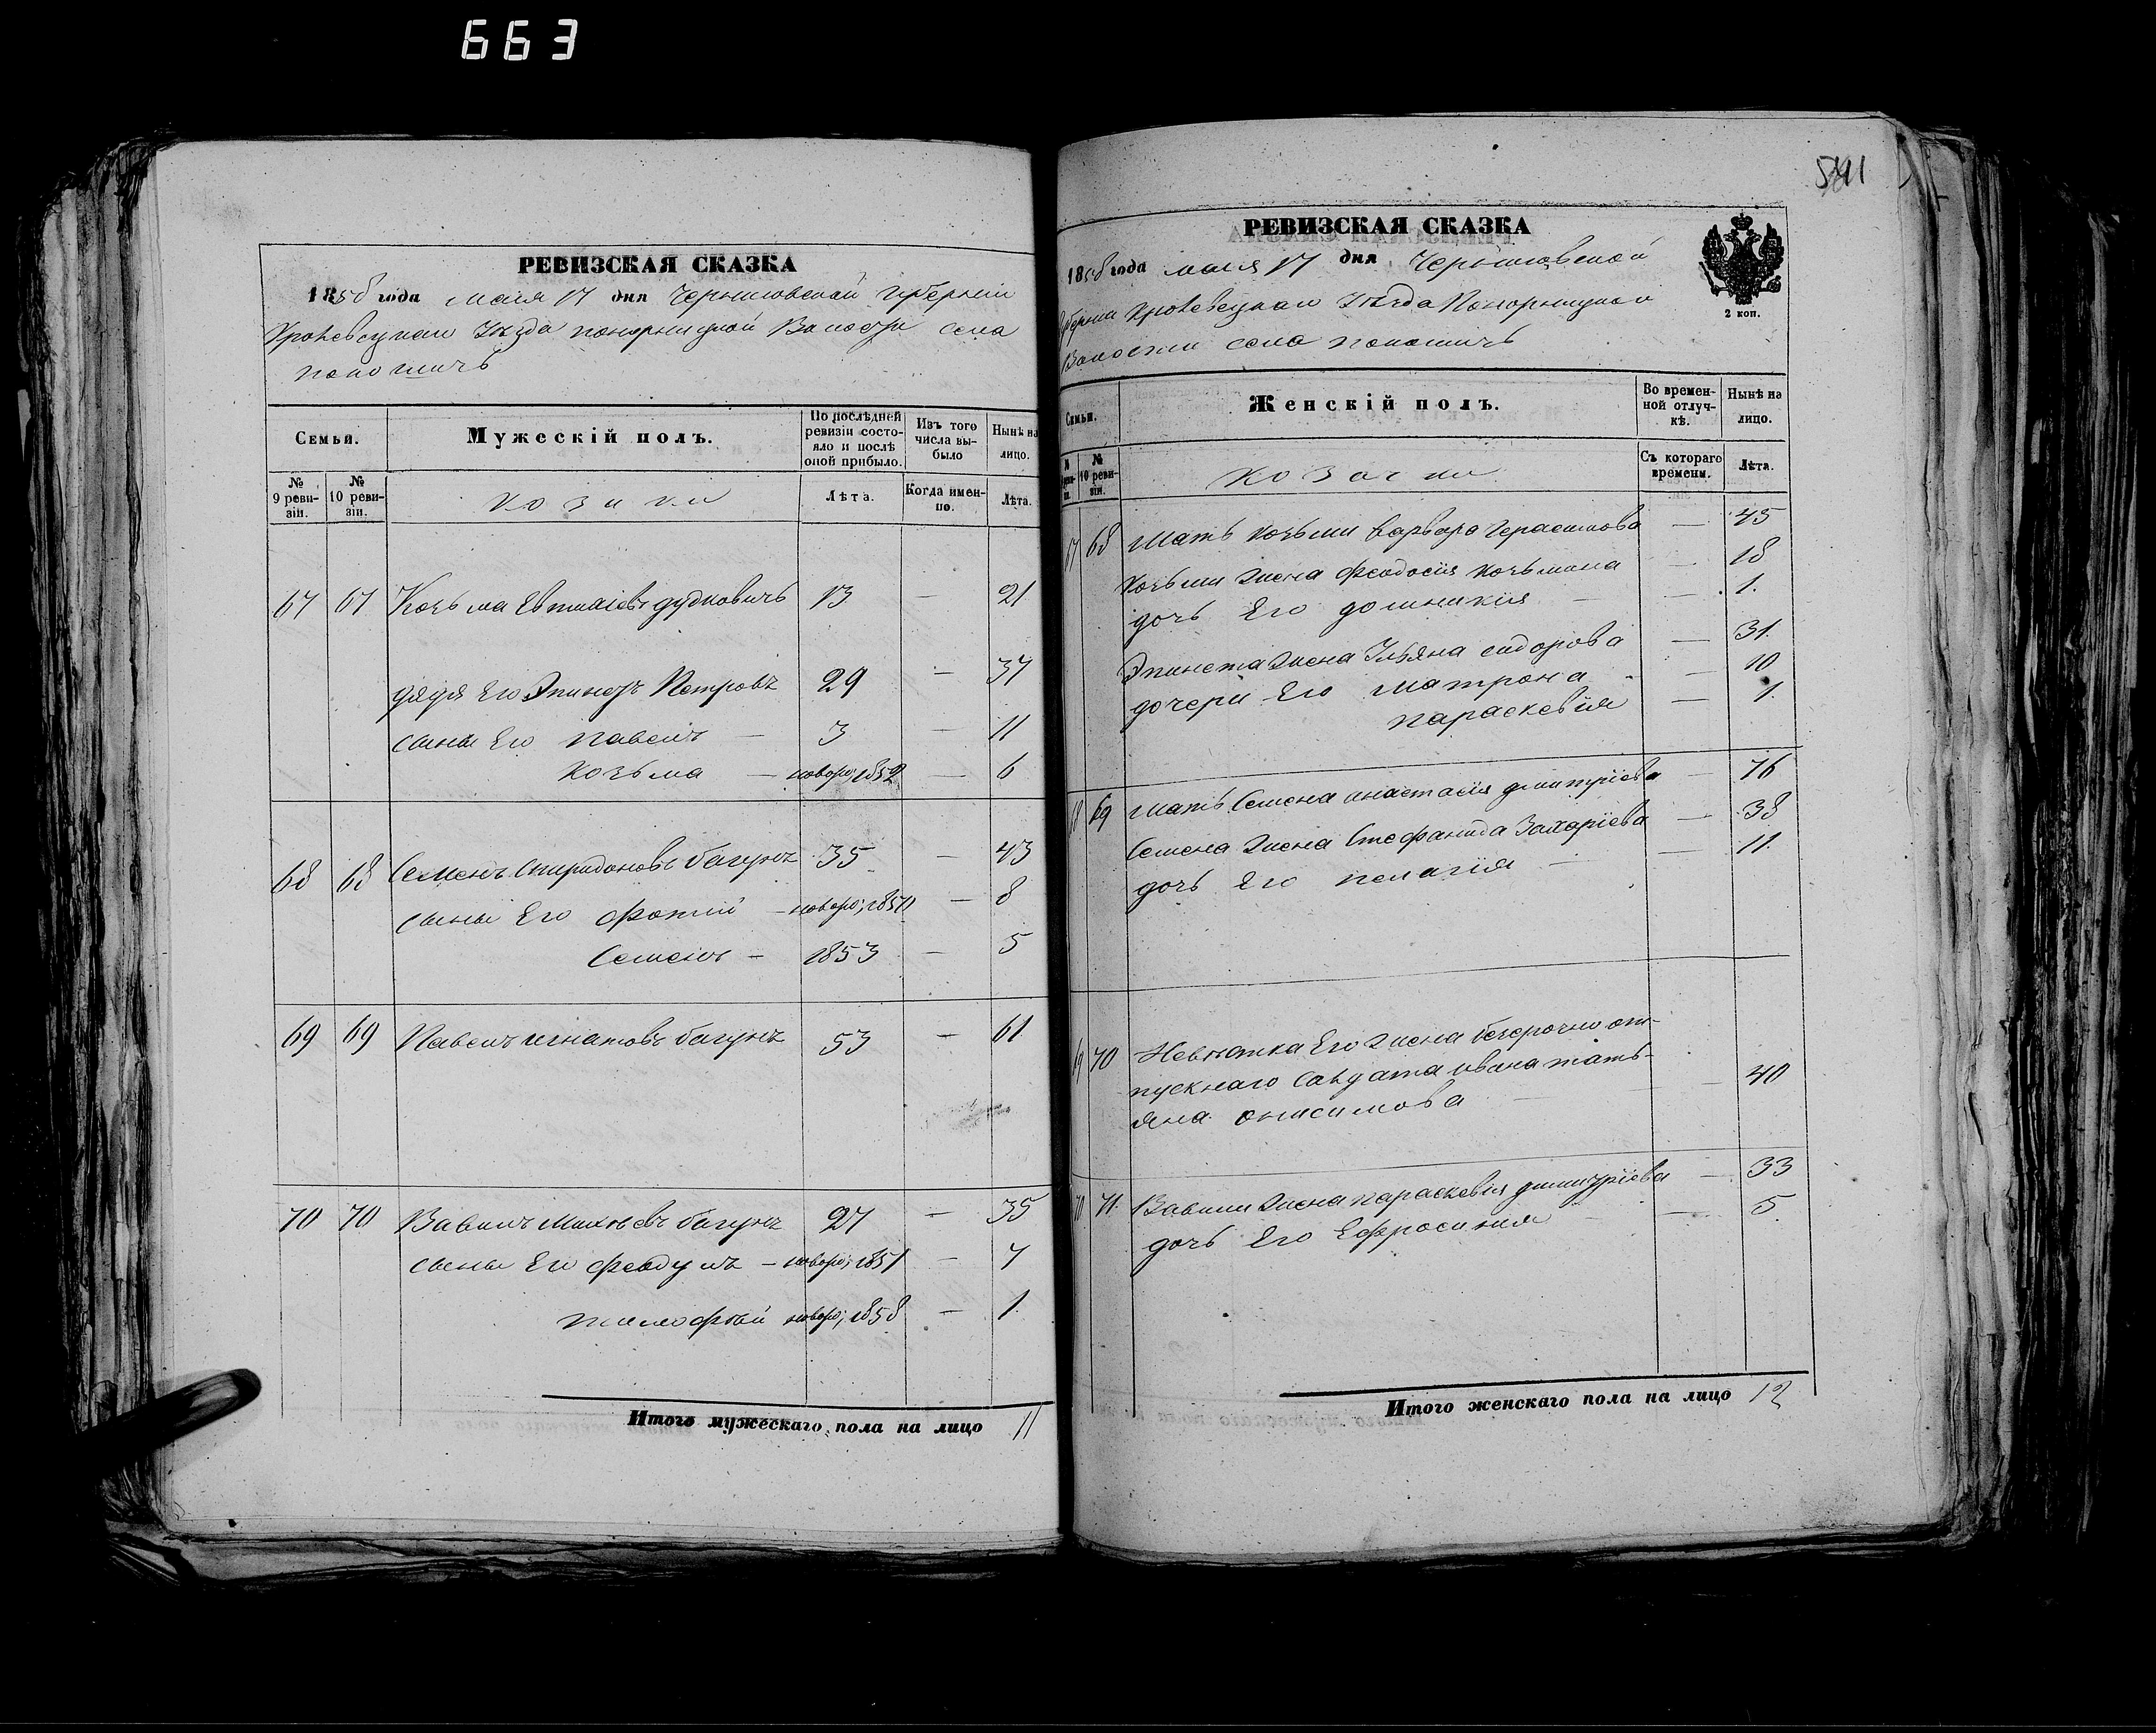 663
РЕВИЗСКАЯ СКАЗКА
1858 года мая 17 дня Черниговской губернии
Кролевецкаго Уѣзда понорницкой Волости села
Мужескій полъ.
Семьи.
По послѣдней ревизіи состояло и послѣ оной прибыло.
Изъ того числа выбыло
Нынѣ на лицо.
№ 9 ревизіи.
№ 10 ревизіи.
козаки
Лѣта.
Когда именно.
Лѣта.
67 67 Козьма Евтихіевъ дудковичъ 13 — 21
дядя Его Петровъ 29 — 37
сыны Его павелъ — 3 — 11
козьма — новоро; 1852 — 6
68 68 Семенъ Спиридоновъ багунъ 35 — 43
сыны Его фотій — новоро; 1850 — 8
Семенъ — 1853 — 5
69 69 Павелъ игнатовъ багунъ 53 — 61
70 70 Вавилъ Михѣевъ багунъ 27 — 35
сыны Его феодулъ — новоро; 1851 — 7
тимофѣй новоро; 1858 — 1.
Итого мужескаго пола на лицо 11
541
РЕВИЗСКАЯ СКАЗКА
1858 года мая 17 дня Черниговской
губерніи Кролевецкаго Уѣзда Понорницкой
Волости села
2 коп.
Семьи.
Женскій полъ.
Во временной отлучкѣ.
Нынѣ на лицо.
№ 10 ревизіи.
козачки
Съ котораго времени.
Лѣта.
68 Мать козьми варвара Герасимова — 45
Козьми жена феодосія козьмина — 18
дочь Его домникія — — 1.
жена Ульяна сидорова — 31.
дочери Его матрона — 10
параскевія — 1.
69 Мать Семена анастасія дмитріева — 76
Семена жена Стефанида Захаріева — 38
дочь Его пелагія — — 11.
70 Невѣстка Его жена безсрочно от-
пускнаго Солдата ивана тать-
яна онисимова — — 40
71. Вавили жена параскевія димитріева — 33
дочь Его Ефросинія — — 5.
Итого женскаго пола на лицо 12